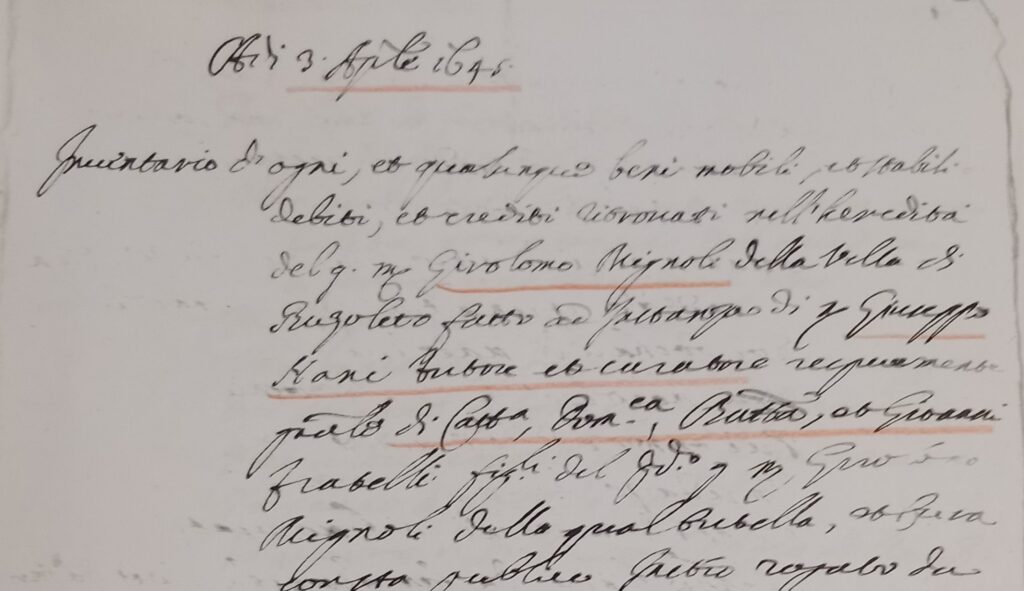 Adi 3. Aprle 1645.
Inventario di ogni, et qualunque beni mobili, et stabili
debiti, et crediti ritrovati nell'heredità
del q. m Girolomo Mignoli della Villa di
fatto ad Instanza di Giuseppe
Nani tutore et curatore
di Catta, Dom.ca, Batta, et Giovanni
fratelli figli del q m
Mignoli della qual tutella, et cura
consta publico rogato da